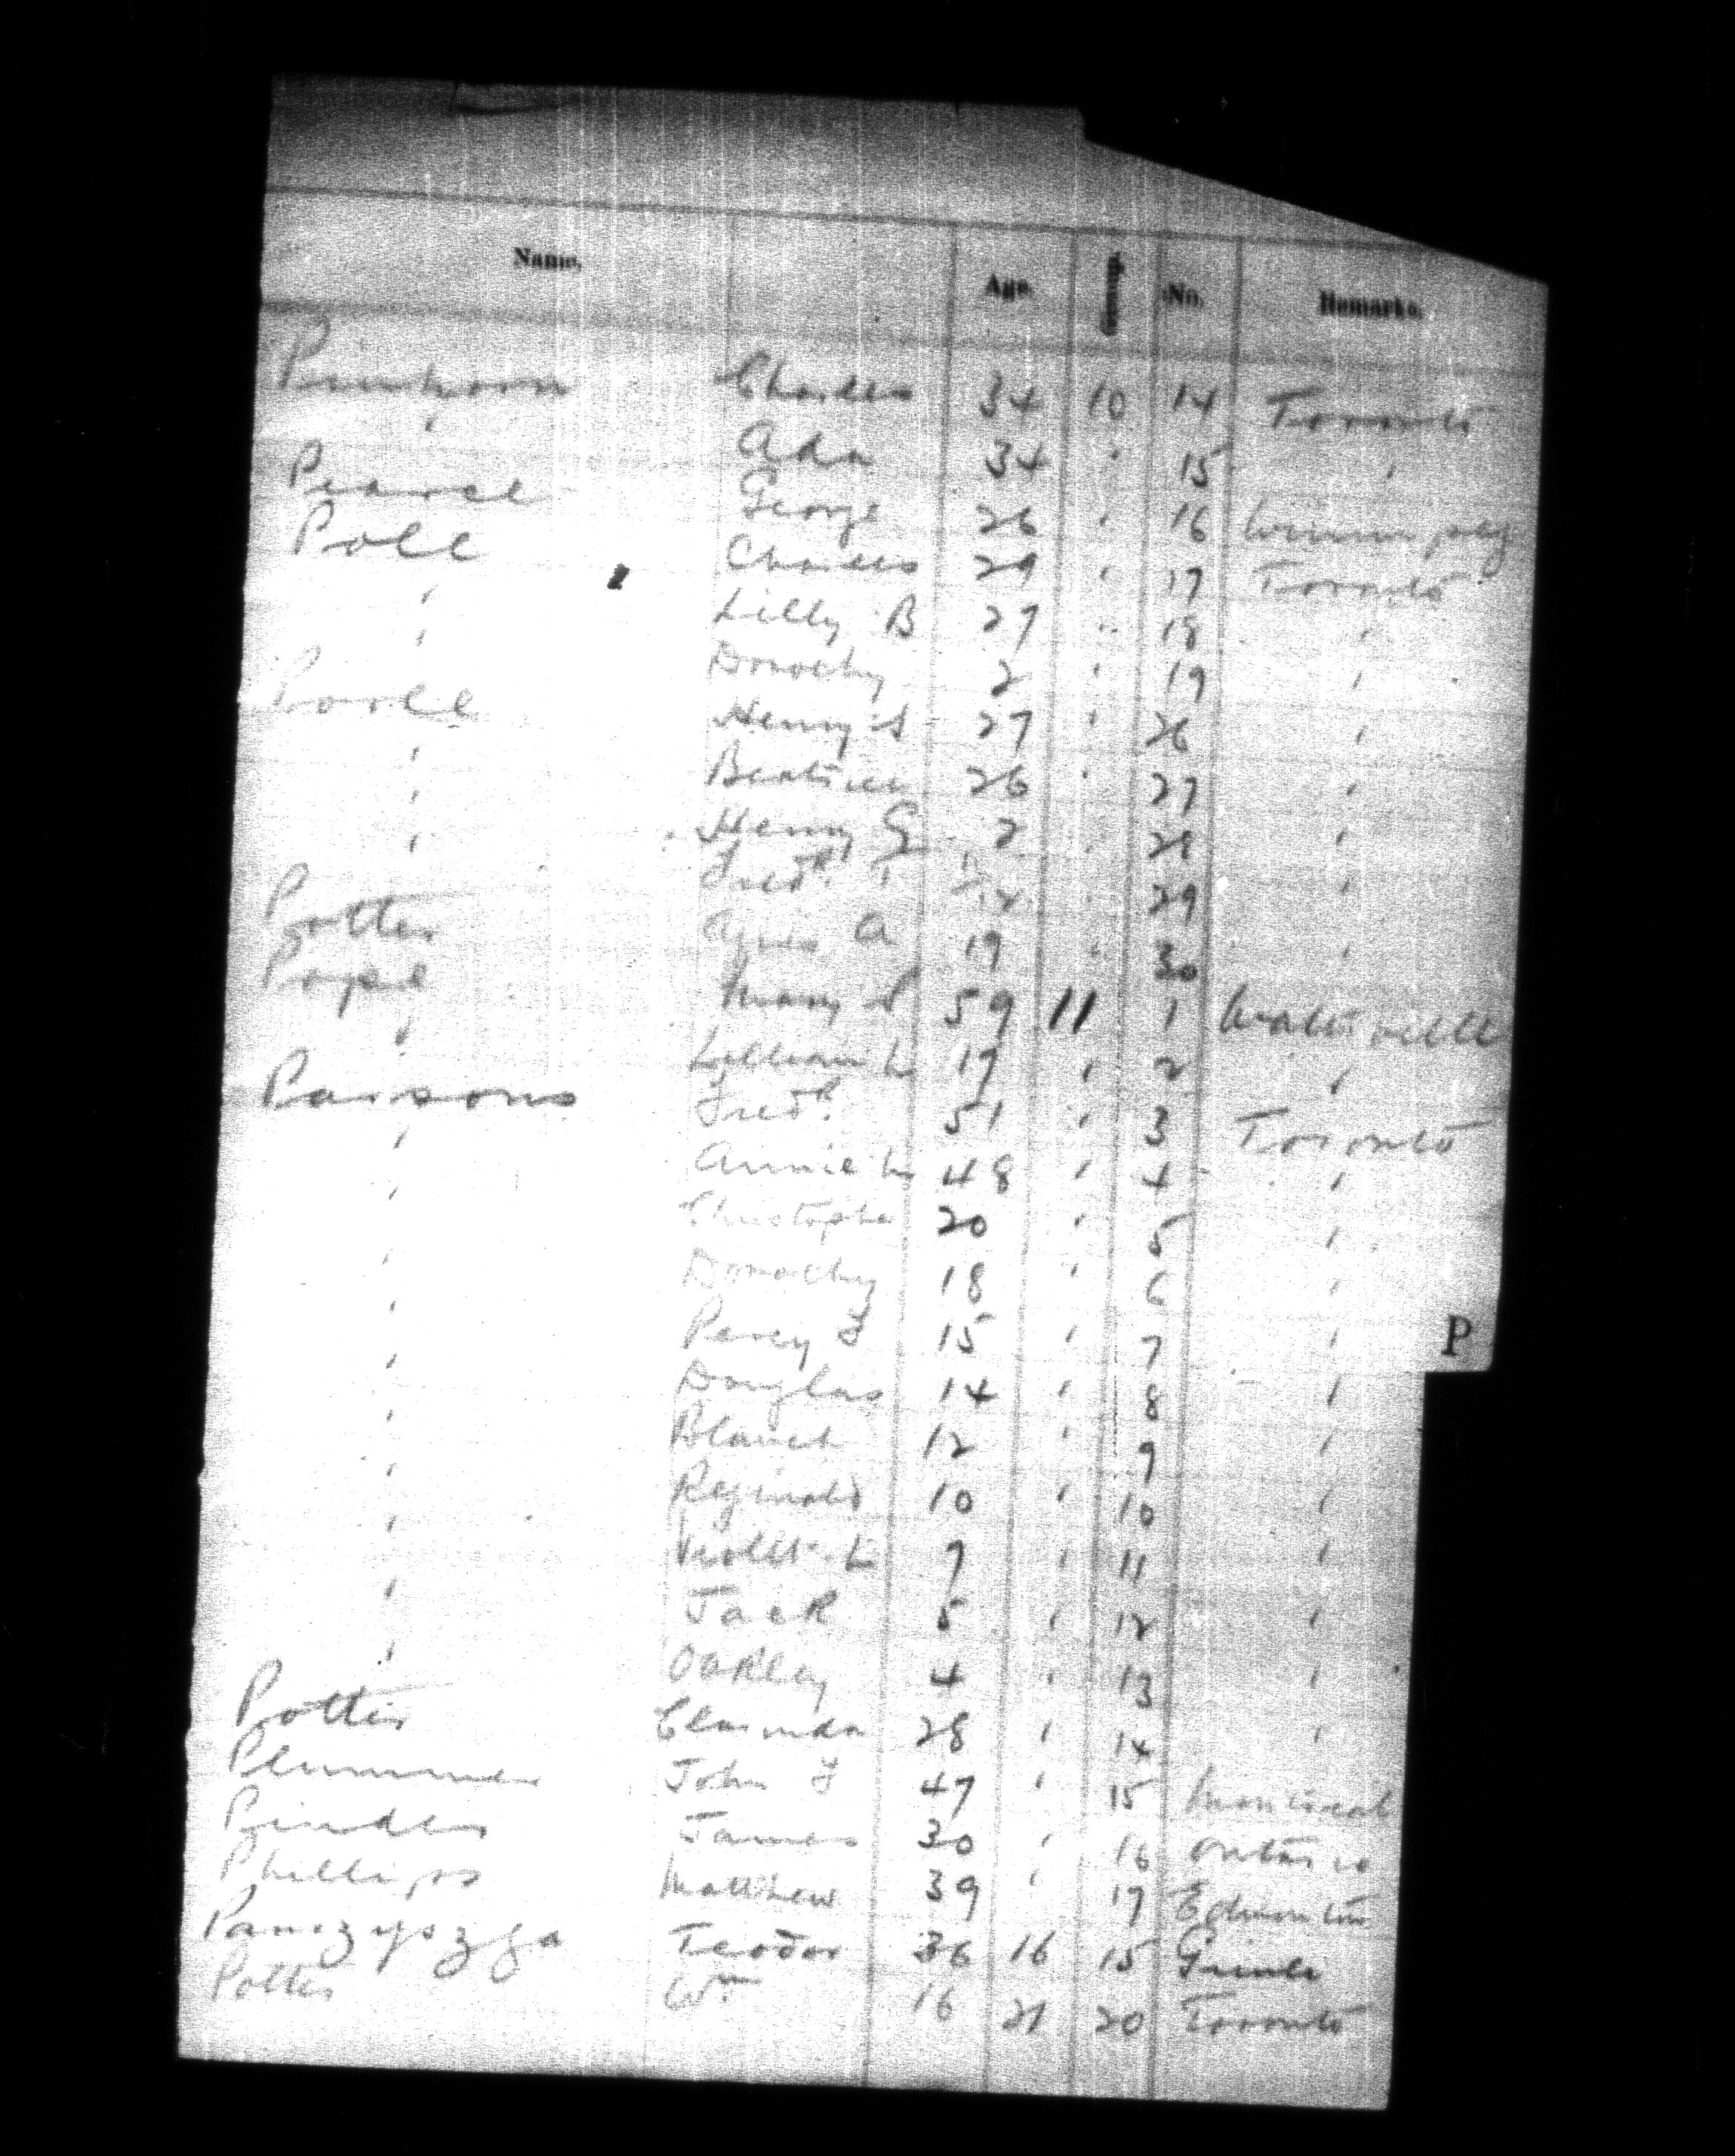 Name. Age. No. Remarks.
Charles 34 10 14 Toronto
" Ada 34 " 15 "
Pearce George 26 " 16 Winnipeg
Poll Charles 29 " 17 Toronto
" Lilly B 27 " 18 "
" Dorothy 2 " 19 "
Henry S 27 " 26 "
" Beatrice 26 " 27 "
" Henry G 2 " 28 "
" Fredk. T 29 "
Potter Agnes A 19 " 30 "
Pope Mary S 59 11 1
" Lillian L 17 " 2 "
Parsons Fredk. 51 " 3 Toronto
" Annie 48 " 4 "
" Christopher 20 " 5 "
" Dorothy 18 " 6 "
" Percy F 15 " 7 "
P
" Douglas 14 " 8 "
" Blanch 12 " 9 "
" Reginald 10 " 10 "
" Violet L 7 " 11 "
" Jack 5 " 12 "
" Oakley 4 " 13 "
Potter Clarinda 28 " 14 "
Plummer John F 47 " 15 Montreal
Pinder James 30 " 16 Ontario
Phillips Matthew 39 " 17 Edmonton
Teodor 36 16 15
Potter Wm 16 21 20 Toronto